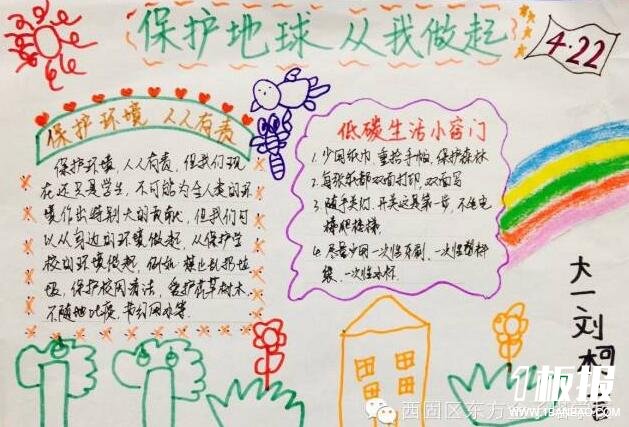 保护地球 从我做起
4.22
保护环境 人人有责
保护环境,人人有责,但我们现
在还只是学生,不可能为全人类的环
境作出特别大的贡献,但我们可
以从身边的环境做起,从保护学
校的环境做起,例如:禁止乱扔垃
圾,保护校园清洁,爱护花草树木,
不随地吐痰,节约用水等.
低碳生活小窍门
1.少用纸巾,重拾手帕,保护森林
2.每张纸都双面打印,双面写
3.随手关灯、开关这是第一步,不坐电
梯爬楼梯
4.尽量少用一次性牙刷、一次性塑料
袋、一次性水杯
大一 刘
板报
WWW.1BANBAO.COM
西固区东方